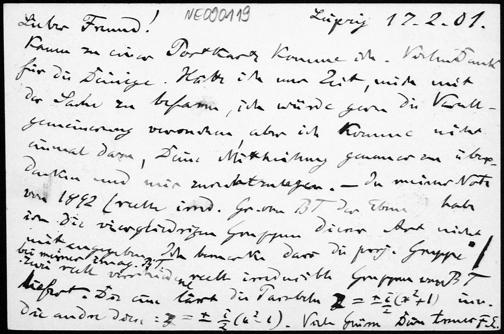 Lieber Freund!
NE090119
Leipzig 17.2.01.
Kaum zu einer Postkarte komme ich. Vielen Dank
für die Deinige. Hätte ich nur Zeit, mich mit
der Sache zu befassen, ich würde gern die Verall-
gemeinerung versuchen aber ich komme nicht
einmal dazu, Deine Mittheilung genauer zu über-
denken und mir zurechtzulegen. — In meiner Note
von 1892 ( irred. Gr. von BT der Ebene hab
ich die viergliedrigen Gruppen dieser Art nicht
mit angegeben. Ich bemerke dass die proj. Gruppe
bei meiner BT
zwei reell verschiedene reell irreducible Gruppen von BT
liefert. Die eine lässt die Parabeln z = ± i/2 (x²+1) inv.
die andre den: z = ± i/2 (x²-1). Viele Grüsse Dein treuer F.E.